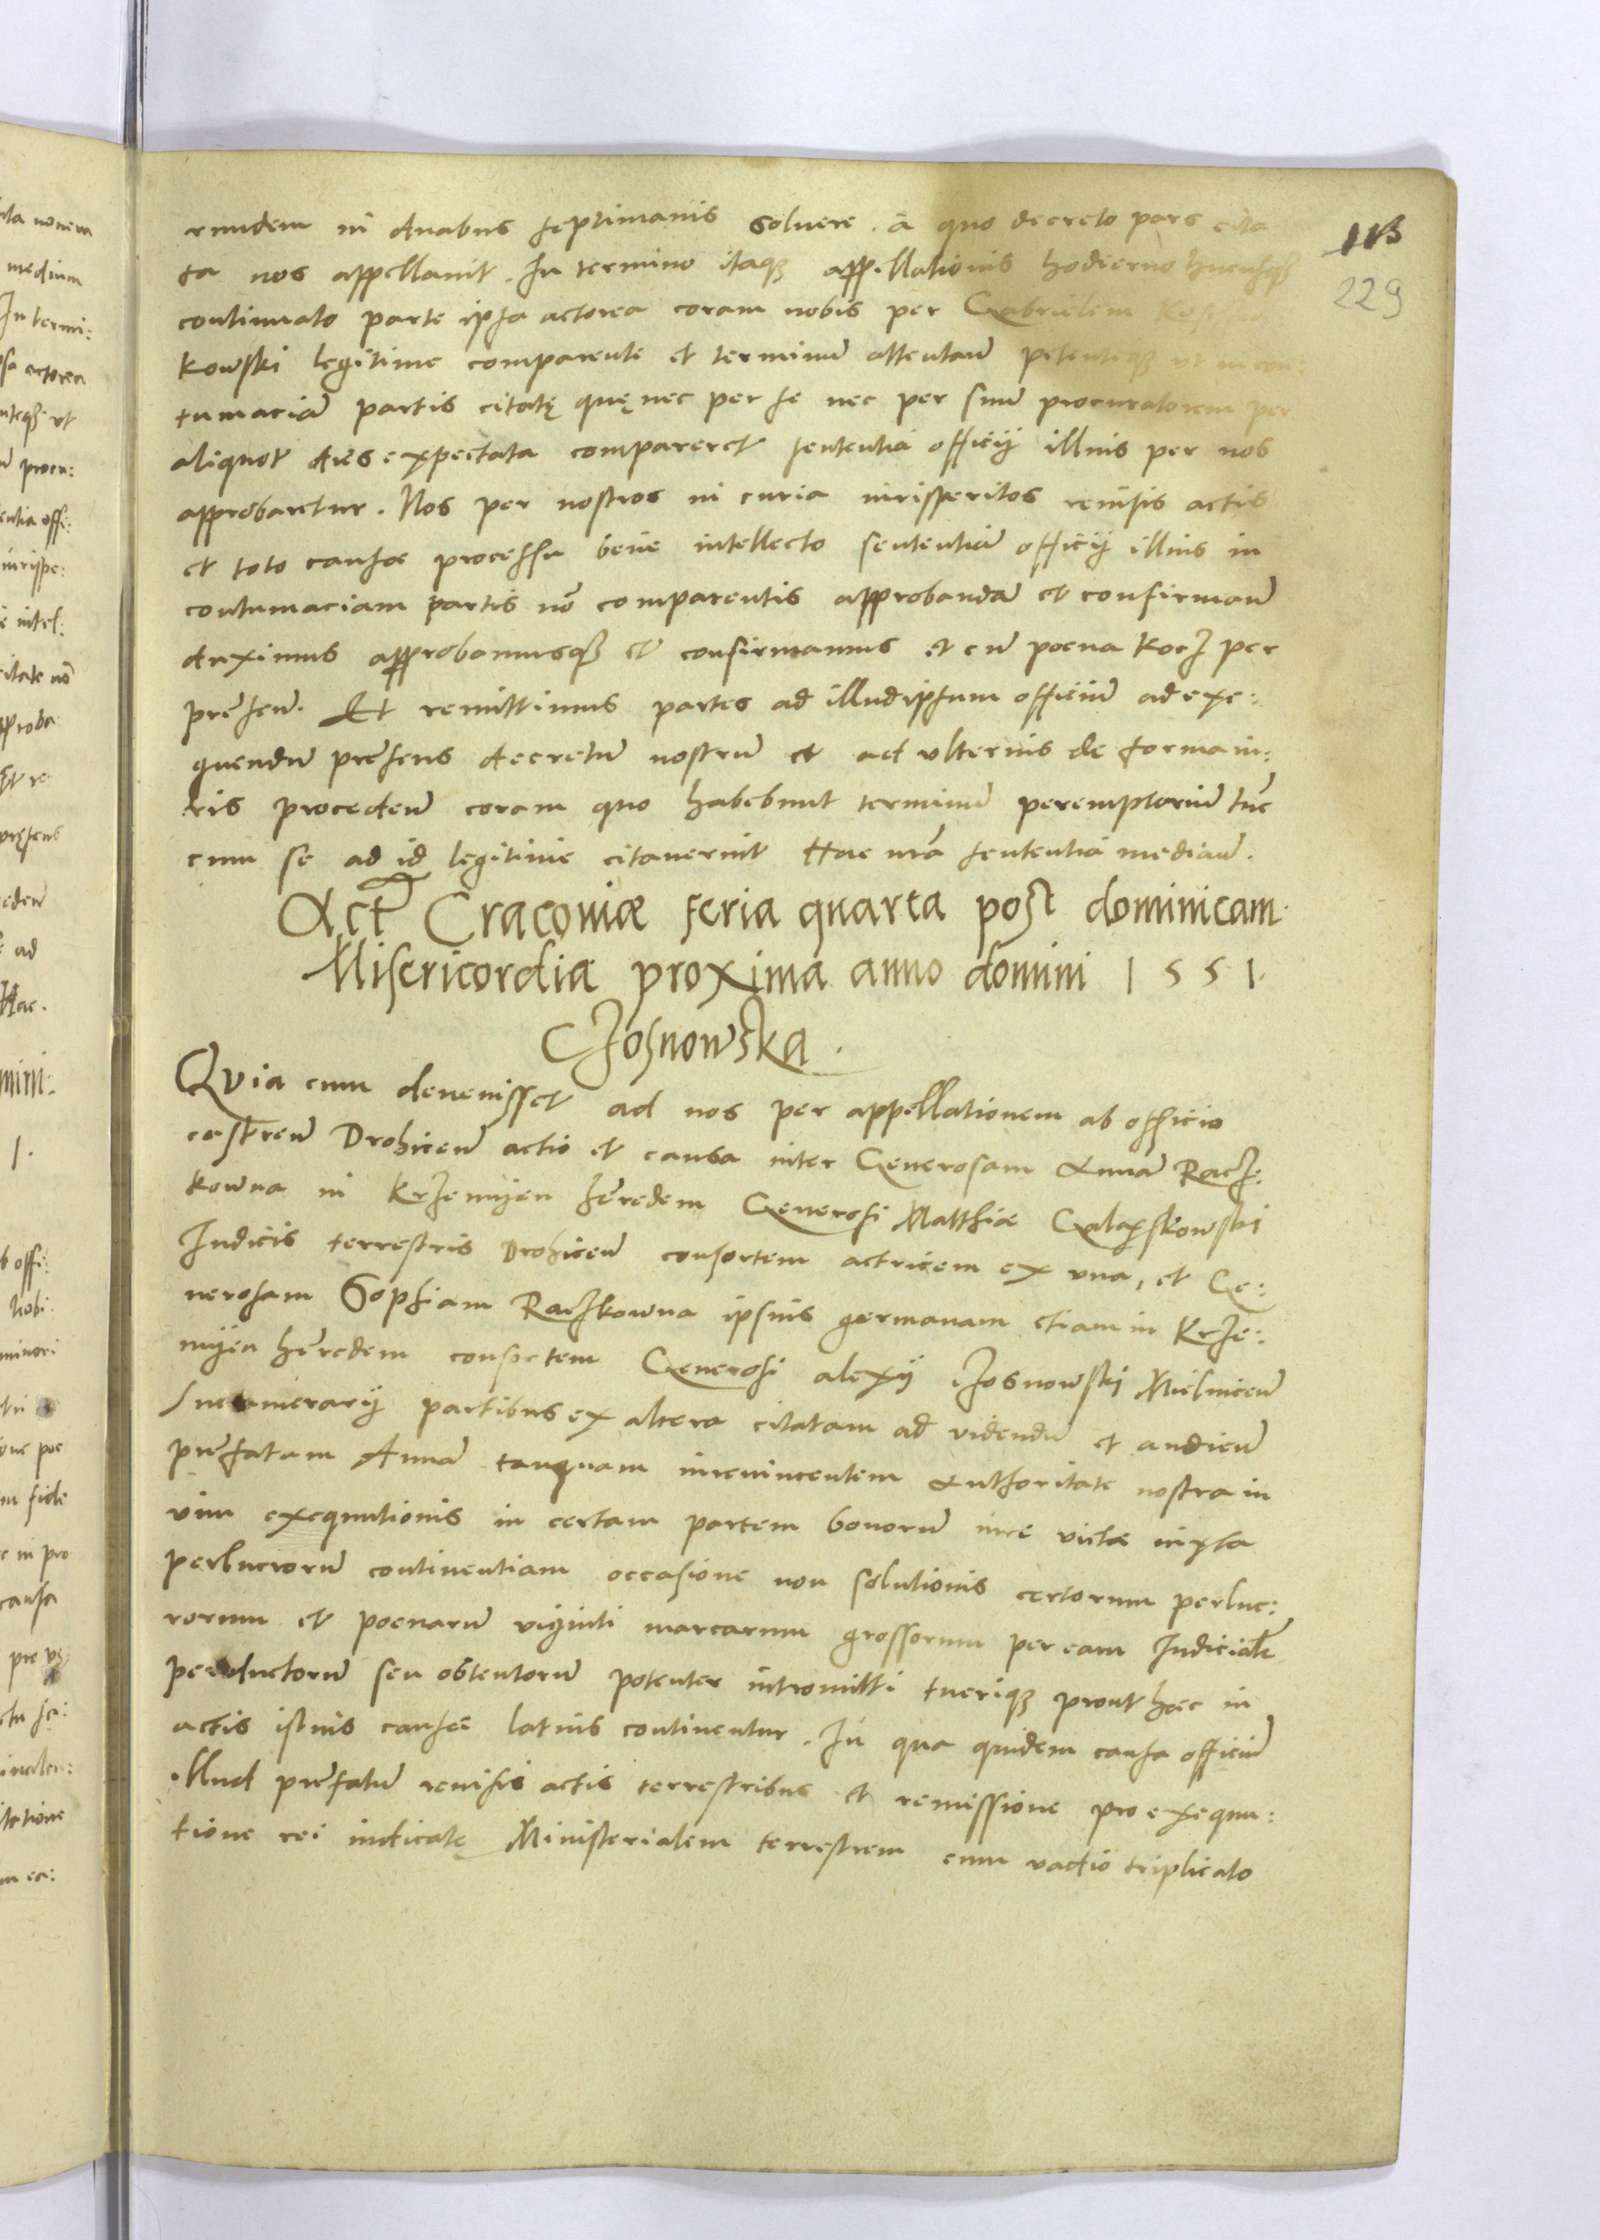 113
229
eundem in duabus septimanis soluere. a quo decreto pars cita
ta nos appellauit. In termino itaq3 appellationis hodierno hucusq3
continuato parte ipsa actorea coram nobis per Gabrielem
kowski legitime comparente et terminū attentan̄ petenteq3 vt in con:
tumaciā partis citatę quę nec per se nec per suū procuratorem per
aliquot dies expectata compareret sententia officÿ illius per nos
approbaretur. Nos per nostros in curia iurisperitos reuisis actis
et toto causae processu bene intellecto sententiā officÿ illius in
contumaciam partis nō comparentis approbandā et confirman̄
duximus approbamusq3 et confirmamus et cū poena kocz per
pręsen̄. Et remittimus partes ad illudipsum officiū ad exe:
quendū pręsens decretū nostrū et ad vlterius de forma iu:
ris proceden̄ coram quo habebunt terminū peremptoriū tūc
cum se ad id legitime citauerint Hac nr̄a sententia median̄.
Act Cracouiae feria quarta post dominicam
Misericordiæ proxima anno domini 1551.
Czosnowska.
Qvia cum deuenisset ad nos per appellationem ab officio
castren̄ Drohicen̄ actio et causa inter Generosam Annā Racz:
kowna in Krzemyen hęredem Generosi Matthiæ Galąskowski
Iudicis terrestris Drohicen̄ consortem actricem ex vna, et Ge:
nerosam Sophiam Raczkowna ipsius germanam etiam in Krze:
myen hęredem consortem Generosi alexÿ Czosnowski Mielnicen̄
Succamerarÿ partibus ex altera citatam ad videndū et audien̄
pręfatam Annā tanquam iureuincentem Authoritate nostra in
vim exequutionis in certam partem bonorū iure victæ iuxta
perlucrorū continentiam occasione non solutionis certorum perluc:
rorum et poenarū viginti marcarum grossorum per eam Iudicialr̄
perductorū seu obtentorū potenter intromitti tueriq3 prout hæc in
actis istius causæ latius continentur. In qua quidem causa officiū
illud pręfatū reuisis actis terrestribus et remissione pro exequu:
tione rei iudicatę Ministerialem terrestrem cum vadio triplicato